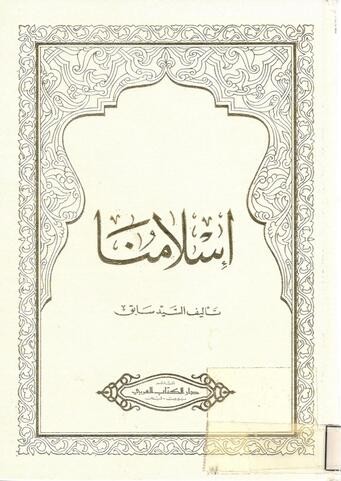 إسلامنا
تأليف السيد سابق
الناشر
دار الكتاب العربي
بيروت - لبنان